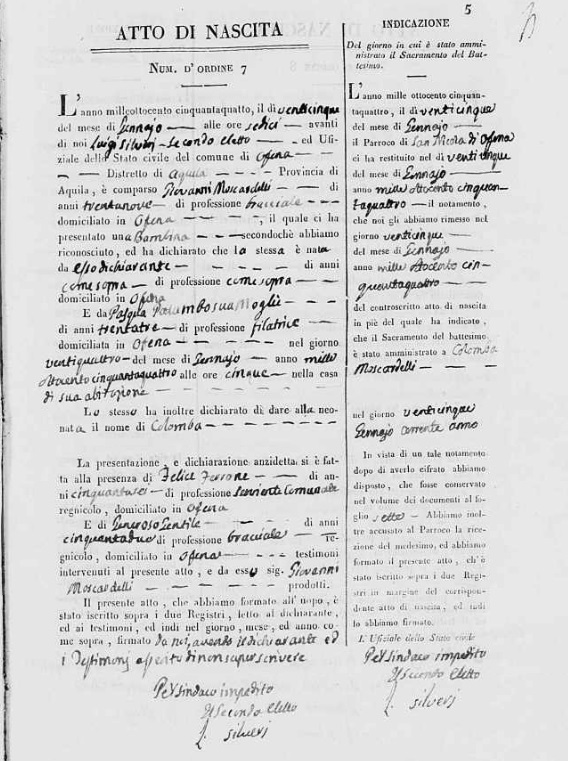 5
ATTO DI NASCITA
NUM. D'ORDINE 7
L'anno milleottocento cinquantaquatto, il dì venticinque
del mese di Gennajo — alle ore sedici — avanti
di noi Luigi Silverj - Secondo eletto — ed Ufi-
ziale dello Stato civile del comune di Ofena —
— Distretto di Aquila — Provincia di
Aquila, è comparso Giovanni Moscardelli — di
anni trentanove — di professione bracciale —
domiciliato in Ofena — , il quale ci ha
presentato una Bambina — secondochè abbiamo
riconosciuto, ed ha dichiarato che la stessa è nata
da esso dichiarante — di anni
come sopra — di professione come sopra —
domiciliato in Ofena
E da Pasqua Palumbo sua Moglie —
di anni trentatre — di professione filatrice —
domiciliata in Ofena — nel giorno
ventiquattro — del mese di Gennajo — anno mille
ottocento cinquantaquattro alle ore cinque — nella casa
di sua abitazione —
Lo stesso ha inoltre dichiarato di dare alla neo-
nata il nome di Colomba —
La presentazione, e dichiarazione anzidetta si è fat-
ta alla presenza di Felice — di an-
ni cinquantasei — di professione Serviente Comunale
regnicolo, domiciliato in Ofena
E di Generoso Gentile — di anni
cinquantadue di professione bracciale — re-
gnicolo, domiciliato in Ofena — testimoni
intervenuti al presente atto, e da esso sig. Giovanni
Moscardelli — prodotti.
Il presente atto, che abbiamo formato all'uopo, è
stato iscritto sopra i due Registri, letto al dichiarante,
ed ai testimoni, ed indi nel giorno, mese, ed anno co-
me sopra, firmato da noi, avendo il dichiarante ed
i Testimonj asserito di non saper scrivere
Pel Sindaco impedito
Il Secondo eletto
L. Silverj
INDICAZIONE
Del giorno in cui è stato ammi-
nistrato il Sacramento del Bat-
tesimo.
L'anno mille ottocento cinquan-
taquattro, il dì venticinque
del mese di Gennajo —
il Parroco di San Nicola d'Ofena
ci ha restituito nel dì venticinque
del mese di Gennajo —
anno mille ottocento cinquan-
taquattro — il notamento,
che noi gli abbiamo rimesso nel
giorno venticinque —
del mese di Gennajo —
anno mille ottocento cin-
quantaquattro —
del controscritto atto di nascita
in piè del quale ha indicato,
che il Sacramento del battesimo
è stato amministrato a Colomba
Moscardelli —
nel giorno venticinque
Gennajo corrente anno
In vista di un tale notamento
dopo di averlo cifrato abbiamo
disposto, che fosse conservato
nel volume dei documenti al fo-
glio sette — Abbiamo inol-
tre accusato al Parroco la rice-
zione del medesimo, ed abbiamo
formato il presente atto, ch'è
stato iscritto sopra i due Regi-
stri in margine del corrispon-
dente atto di nascita, ed indi
lo abbiamo firmato.
L'Ufiziale dello Stato civile
Pel Sindaco impedito
Il Secondo eletto
L. Silverj